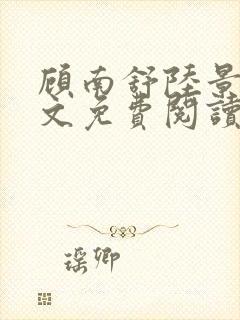 顾南舒陸景
文免費閱讀
瑶卿